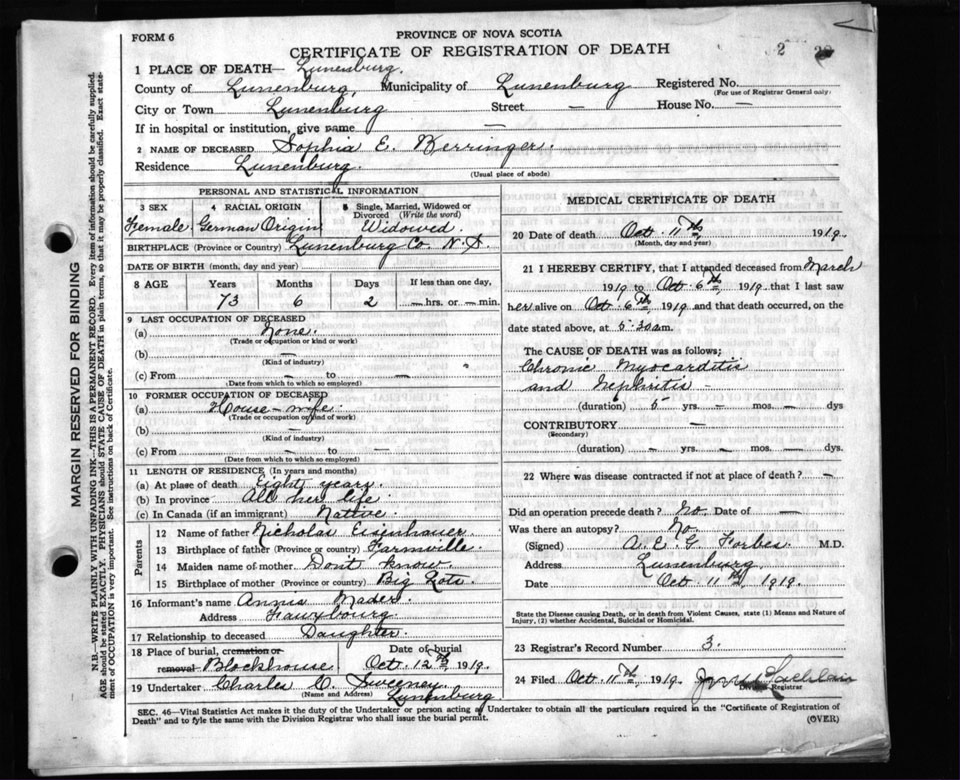 FORM 6
PROVINCE OF NOVA SCOTIA
CERTIFICATE OF REGISTRATION OF DEATH
2
1 PLACE OF DEATH— Lunenburg.
County of Lunenburg, Municipality of Lunenburg Registered No.
(For use of Registrar General only)
City or Town Lunenburg Street — House No. —
If in hospital or institution, give name —
2 NAME OF DECEASED Sophia E. Berringer.
Residence Lunenburg.
(Usual place of abode)
PERSONAL AND STATISTICAL INFORMATION
3 SEX 4 RACIAL ORIGIN 5 Single, Married, Widowed or Divorced (Write the word)
Female. German Origin Widowed.
BIRTHPLACE (Province or Country) Lunenburg Co. N.S.
DATE OF BIRTH (month, day and year)
8 AGE Years Months Days If less than one day,
73 6 2 —hrs. or— min.
9 LAST OCCUPATION OF DECEASED
(a) None.
(Trade or occupation or kind or work)
(b) —
(Kind of industry)
(c) From — to —
(Date from which to which so employed)
10 FORMER OCCUPATION OF DECEASED
(a) House-wife.
(Trade or occupation or kind of work)
(b) —
(Kind of industry)
(c) From — to —
(Date from which to which so employed)
11 LENGTH OF RESIDENCE (In years and months)
(a) At plase of death Eight years.
(b) In province All her life
(c) In Canada (if an immigrant) Native
Parents
12 Name of father Nicholas Eisenhauer
13 Birthplace of father (Province or country) Farmville.
14 Maiden name of mother. Don't know.
15 Birthplace of mother (Province or country) Big Lots.
16 Informant's name Annie Mader.
Address Fauxbourg
17 Relationship to deceased Daughter.
18 Place of burial, cremation or removal Blockhouse Date of burial Oct. 12th, 1919.
19 Undertaker Charles C. Sweeney
(Name and Address) Lunenburg.
MEDICAL CERTIFICATE OF DEATH
20 Date of death Oct. 11th 1919.
(Month, day and year)
21 I HEREBY CERTIFY, that I attended deceased from March
1919 to Oct. 6th, 1919 that I last saw
her alive on Oct. 6th, 1919 and that death occurred, on the
date stated above, at 5.30am.
The CAUSE OF DEATH was as follows;
Chronic Myocarditis
and Nephritis —
(duration) 5 yrs. — mos. — dys
CONTRIBUTORY —
(Secondary)
(duration) — yrs. — mos. — dys.
22 Where was disease contracted if not at place of death? —
Did an operation precede death? No. Date of —
Was there an autopsy? No.
(Signed) A. E. G. Forbes M.D.
Address Lunenburg.
Date Oct. 11th, 1919.
State the Disease causing Death, or in death from Violent Causes, state (1) Means and Nature of
Injury, (2) whether Accidental, Suicidal or Homicidal.
23 Registrar's Record Number 3.
24 Filed Oct. 11th, 1919
Division Registrar
SEC. 46—Vital Statistics Act makes it the duty of the Undertaker or person acting as Undertaker to obtain all the particulars required in the "Certificate of Registration of
Death" and to fyle the same with the Division Registrar who shall issue the burial permit.
(OVER)
MARGIN RESERVED FOR BINDING
N.B.—WRITE PLAINLY WITH UNFADING INK—THIS IS A PERMANENT RECORD. Every item of information should be carefully supplied.
AGE should be stated EXACTLY. PHYSICIANS should STATE CAUSE OF DEATH in plain terms, so that it may be properly classified. Exact state-
ment of OCCUPATION is very important. See instructions on back of Certificate.